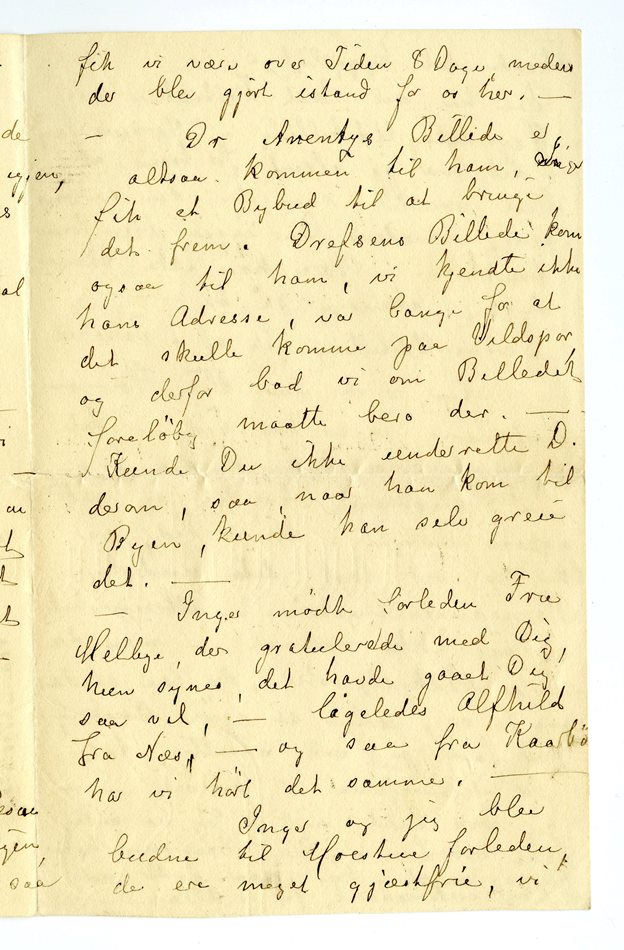 fik vi være over Tiden 8 Dage medens
der blev gjort istand for os her. —
— Dr Arentz's Billede er
altsaa kommen til ham, Inger
fik et Bybud til at bringe
det frem. Drefsens Billede kom
ogsaa til ham, vi kjendte ikke
hans Adresse, var bange for at
det skulle komme paa Vildspor
og derfor bad vi om Billedet
foreløbig maatte bero der. —
Kunde Du ikke underrette D.
derom, saa, naar han kom til
Byen, kunde han selv greie
det. —
— Inger mødte forleden Frue
Mellbye, der gratulerede med Dig,
hun synes, det havde gaaet Dig
saa vel, — ligeledes Alfhild
fra Næs, — og saa fra Kaarbø
har vi hørt det samme. —
Inger og jeg blev
budne til Moestue forleden,
de ere meget gjæstfrie, vi
de
igjen,
s
al
i
—
au
t
t
t
—
saa